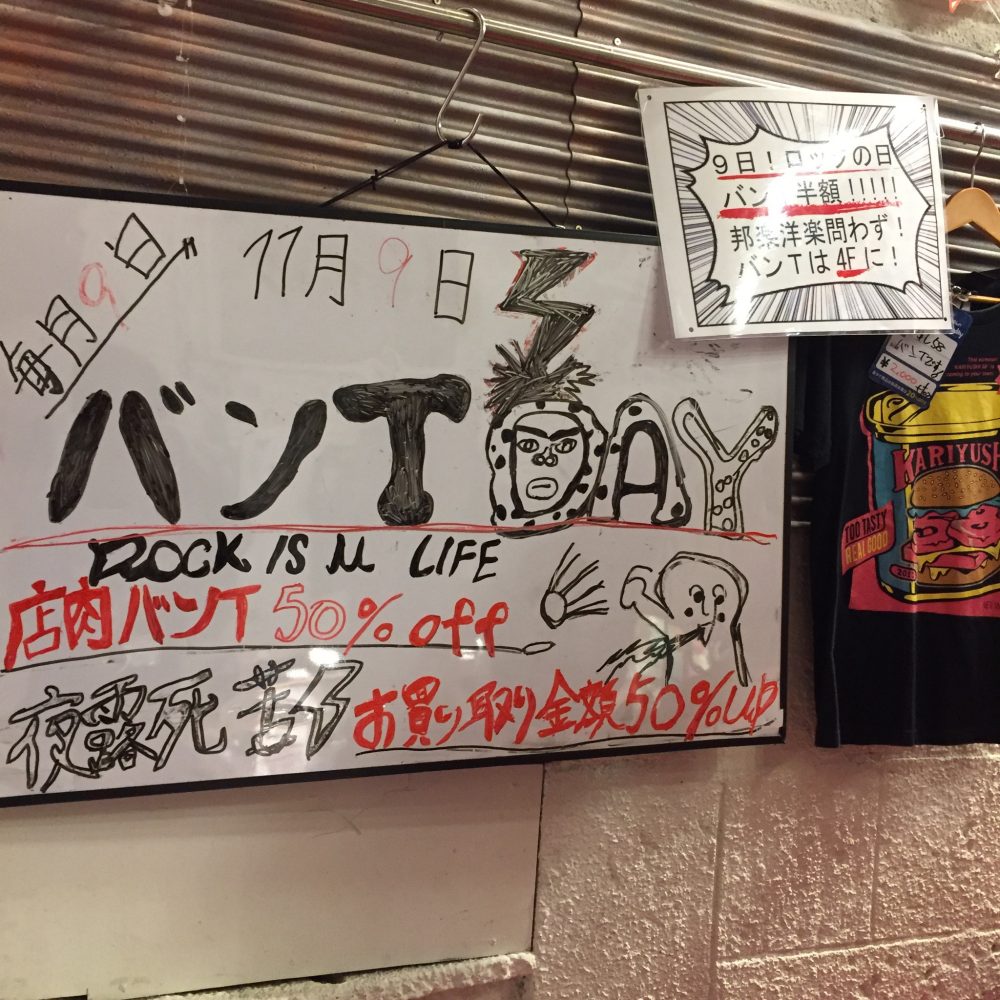 毎月9日
11月9日
バンT DAY
ROCK IS M LIFE
店内バンT 50% off
夜露死苦
お買い取り金額50%up
9日!ロックの日
バンT半額!!!!!
邦楽洋楽問わず!
バンTは4Fに!
バンTです
¥2,000
KARIYUSH
TOO TASTY
REAL GOOD